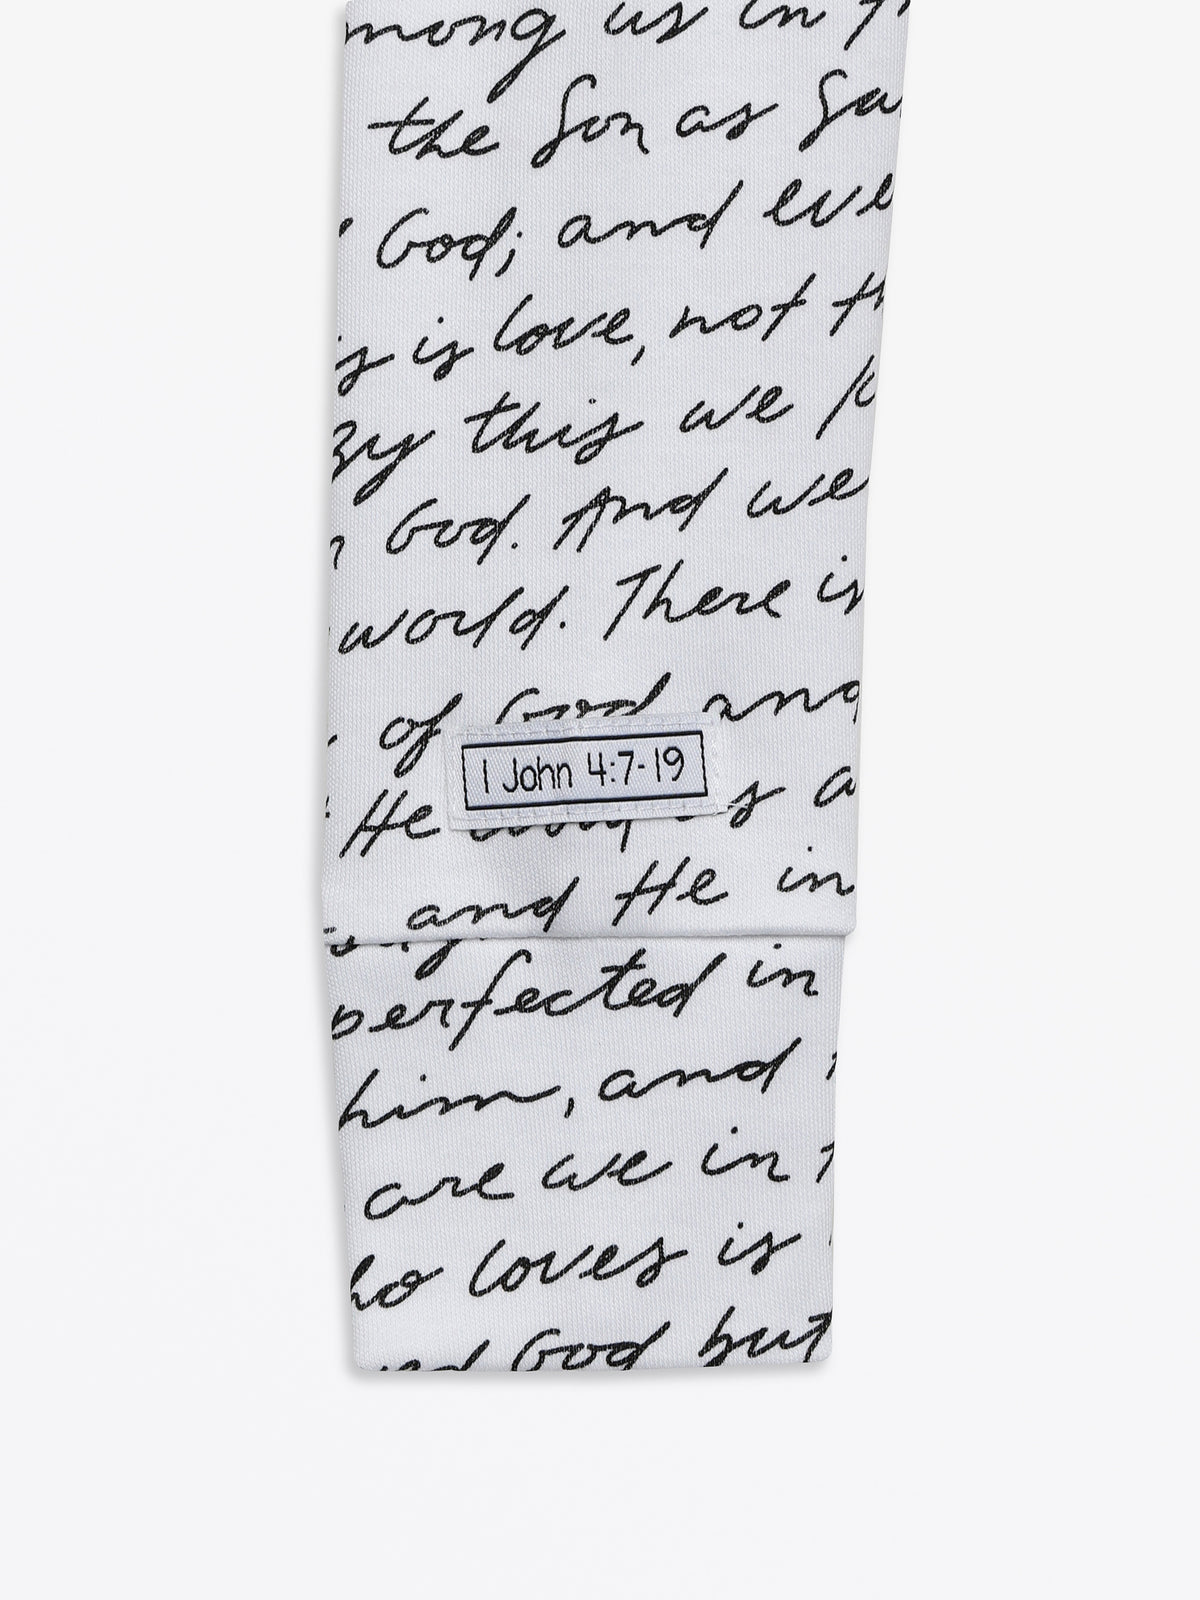 among us in
the Son as
God; and
is love, not
this we
God. And we
world. There is
of God and
1 John 4:7-19
He
and He in
perfected in
him, and
are we in
loves is
God but